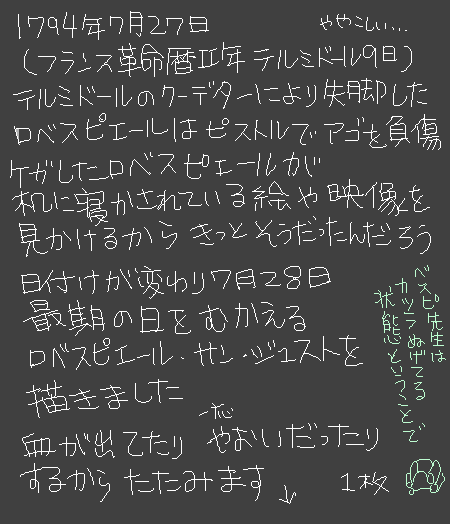 1794年7月27日
ややこしい…
(フランス革命暦Ⅱ年 テルミドール9日)
テルミドールのクーデターにより失脚した
ロベスピエールはピストルでアゴを負傷
ケガしたロベスピエールが
机に寝かされている絵や映像を
見かけるから きっとそうだったんだろう
日付けが変わり7月28日
最期の日をむかえる
ロベスピエール・サン・ジュストを
描きました
血が出てたり 一応やおいだったり
するから たたみます ↓
1枚
ベスピ先生は
カツラぬげてる
状態ということで